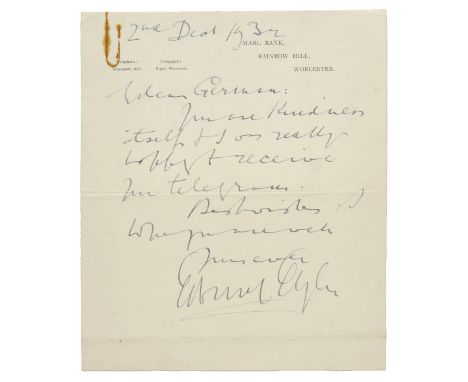 2nd Dec 1932
MARL BANK,
RAINBOW HILL,
WORCESTER.
Telephone:
Telegrams:
Elgar, Worcester
My dear German:
You are kindness
itself & I was really
happy to receive
your telegram.
Best wishes &
hope you are well
Yours ever
Edward Elgar